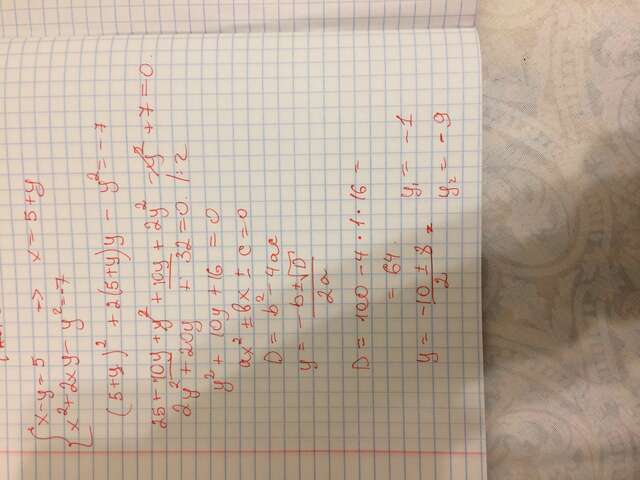 { x-y=5 => x=5+y
x²+2xy-y²=-7
(5+y)²+2(5+y)y-y²=-7
25+10y+y²+10y+2y²-y²+7=0.
2y²+20y+32=0. /:2
y²+10y+16=0
ax²±bx±c=0
D=b²-4ac
y=(-b±√D)/2a
D=100-4·1·16=
=64.
y=(-10±8)/2= y₁=-1
y₂=-9